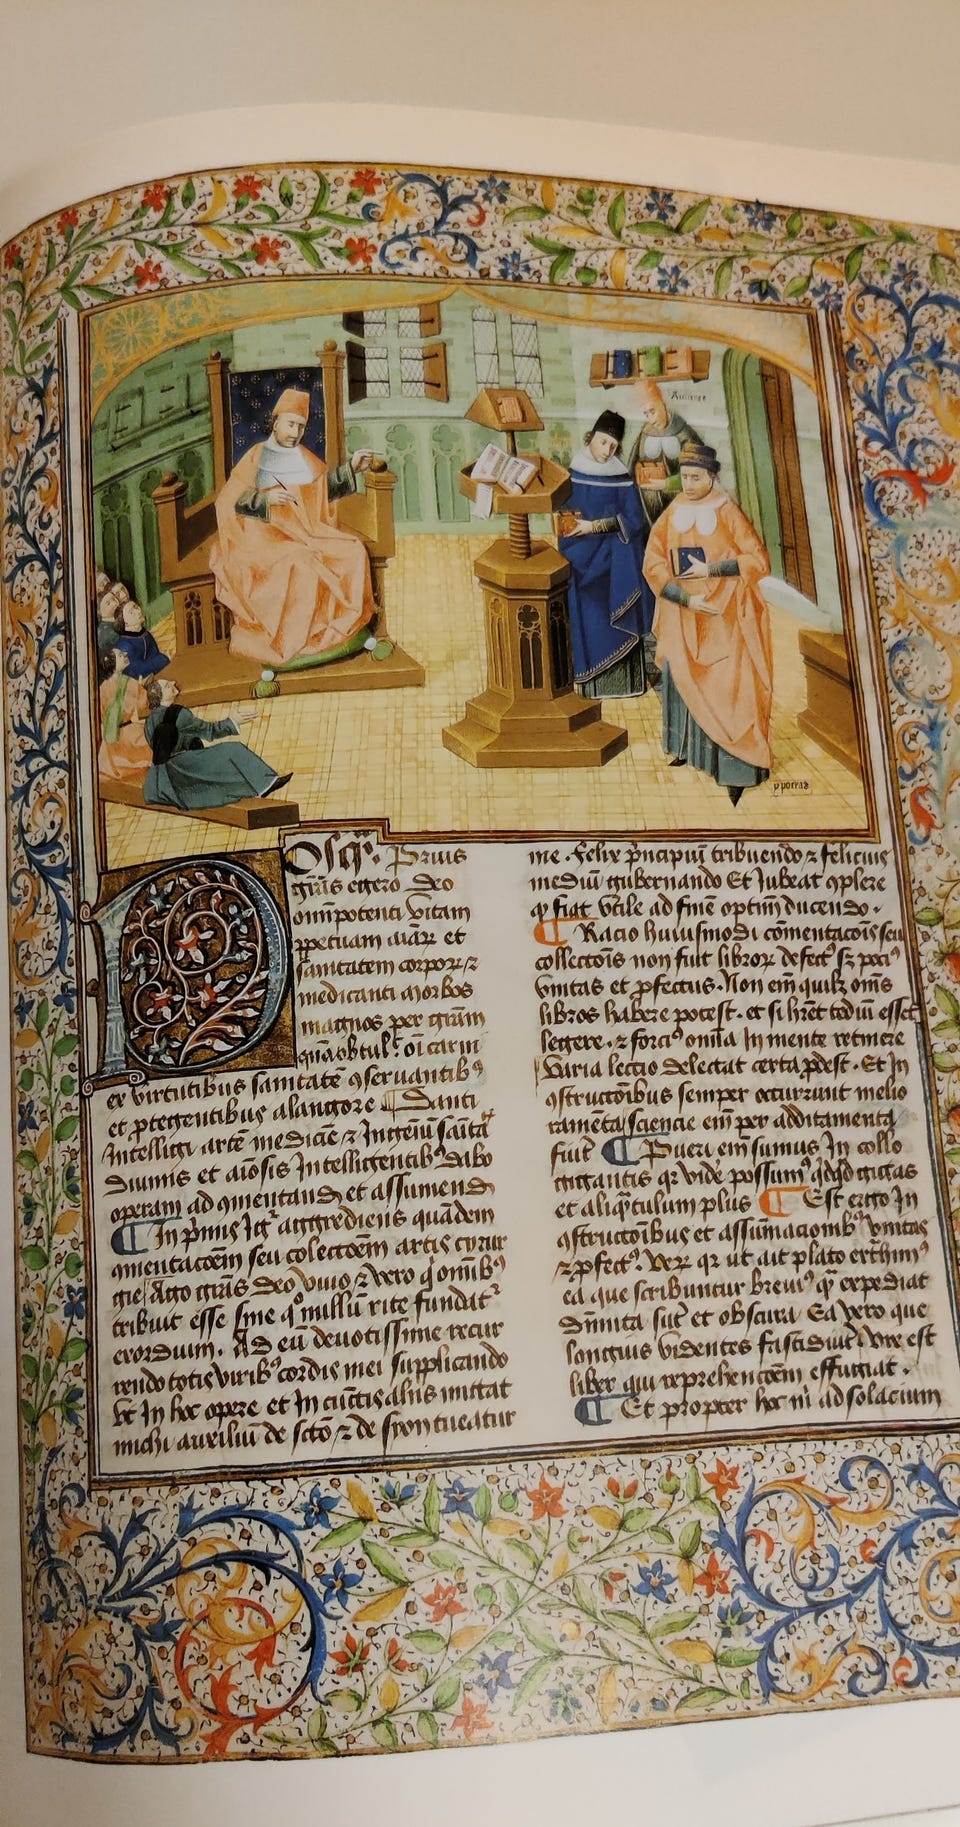 Auicene
ypocras
OSqȝ. Prius
grās egero deo
omīpotenti vitam
ꝑpetuam aīaꝝ et
sanitatem corpoꝝ ⁊
medicanti morbos
magnos per grām
oī carni
ex virtutibus sanitatē ꝯseruantibꝰ
et ꝓtegentibus a langore ¶ Danti
Intelligi artē medicīe ⁊ Ingeniū
diuinis et aīosis Intelligentibꝰ dabo
operam ad ꝯmentand et assumend
¶ In pͥmis Igͥ aggrediens quādem
ꝯmentacōem seu colectōem artis cyrur
gie Ago grās deo viuo ⁊ vero qͥ omībꝰ
tribuit esse sine qͦ nullū rite fundatͬ
exordium. Ad eū deuotissime recur
rendo totis viribꝰ cordis mei supplicando
vt In hoc opere et In cūctis aliis mittat
michi auxiliū de sctō ⁊ de syon tueatur
me. Felix pͥncipiū tribuendo ⁊ felicius
mediū gubernando Et Jubeat ꝯplere
qͩ fiat vtile ad finē optimū ducendo.
¶ Racio huiusmodi comentacōis seu
collectōis non fuit libroꝝ defectꝰ sȝ pociꝰ
vnitas et ꝓfectus. Non em̄ quilȝ om̄s
libros habere potest. et si hr̄et tediū esset
legere. ⁊ forciꝰ omīa In mente retinere
varia lectio delectat certa ꝓdest. Et In
ꝯstructōibus semper occurrunt melio
ramēta sciencie em̄ per additamenta
fiūt ¶ Pueri em̄ sumus In collo
gigantis qꝛ videˀ possumꝰ qͥdqͥd gigas
et aliqͣtulum plus ¶ Est ergo In
ꝯstructōibus et assūmaciōibꝰ vnitas
⁊ ꝓfectꝰ. Veꝝ qꝛ ut ait plato
ea que scribuntur breuiꝰ qͣ expediat
sūt et obscura Ea vero que
longius videntes fastidiūt vix est
liber qui reprehencōem effugiat.
¶ Et propter hoc ad solacium